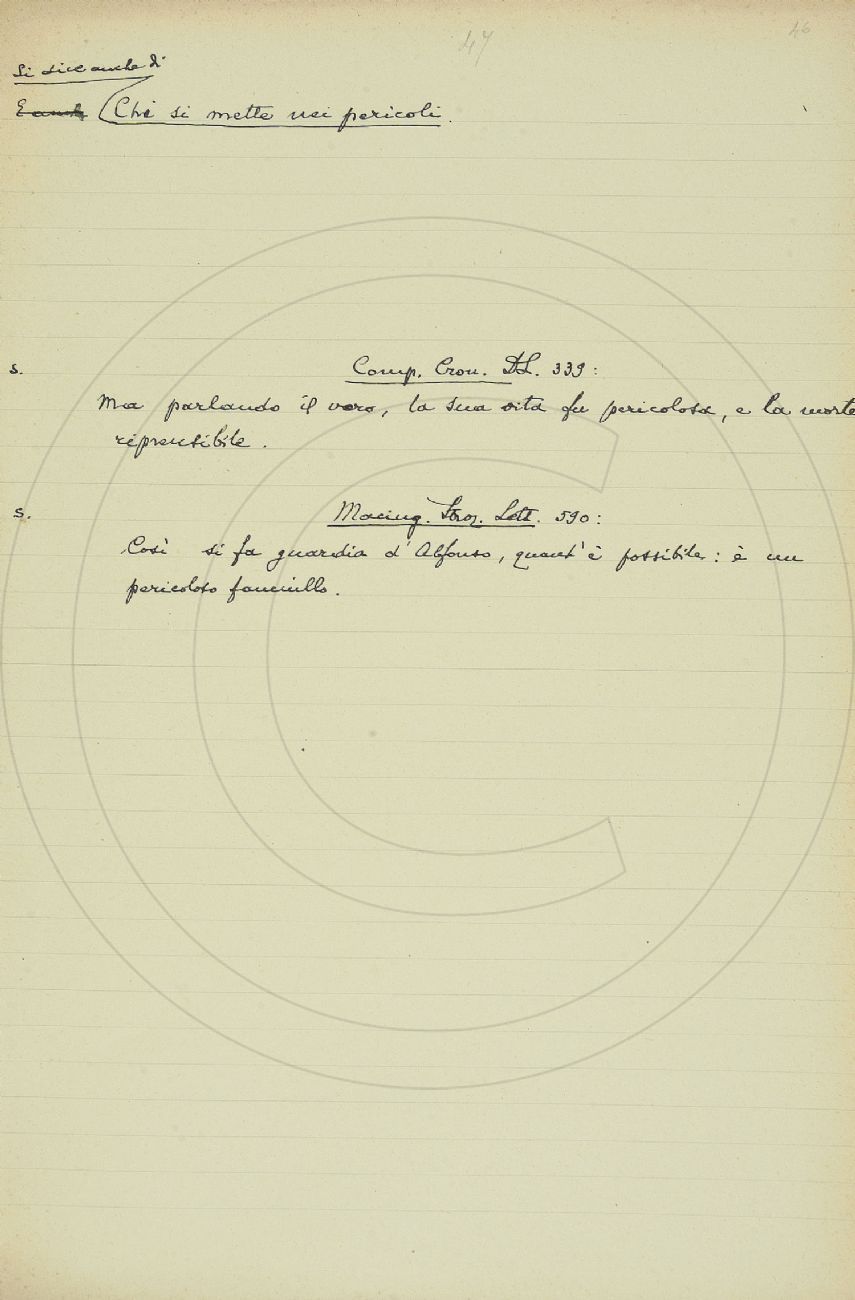 47 46
Si dice anche di
E anche Chi si mette nei pericoli.
s. Comp. Cron. DL. 339:
Ma parlando il vero, la sua vita fu pericolosa, e la morte
riprensibile.
s. Macing. Stroz. Lett. 590:
Così si fa guardia d'Alfonso, quant'è possibile: è un
pericoloso fanciullo.